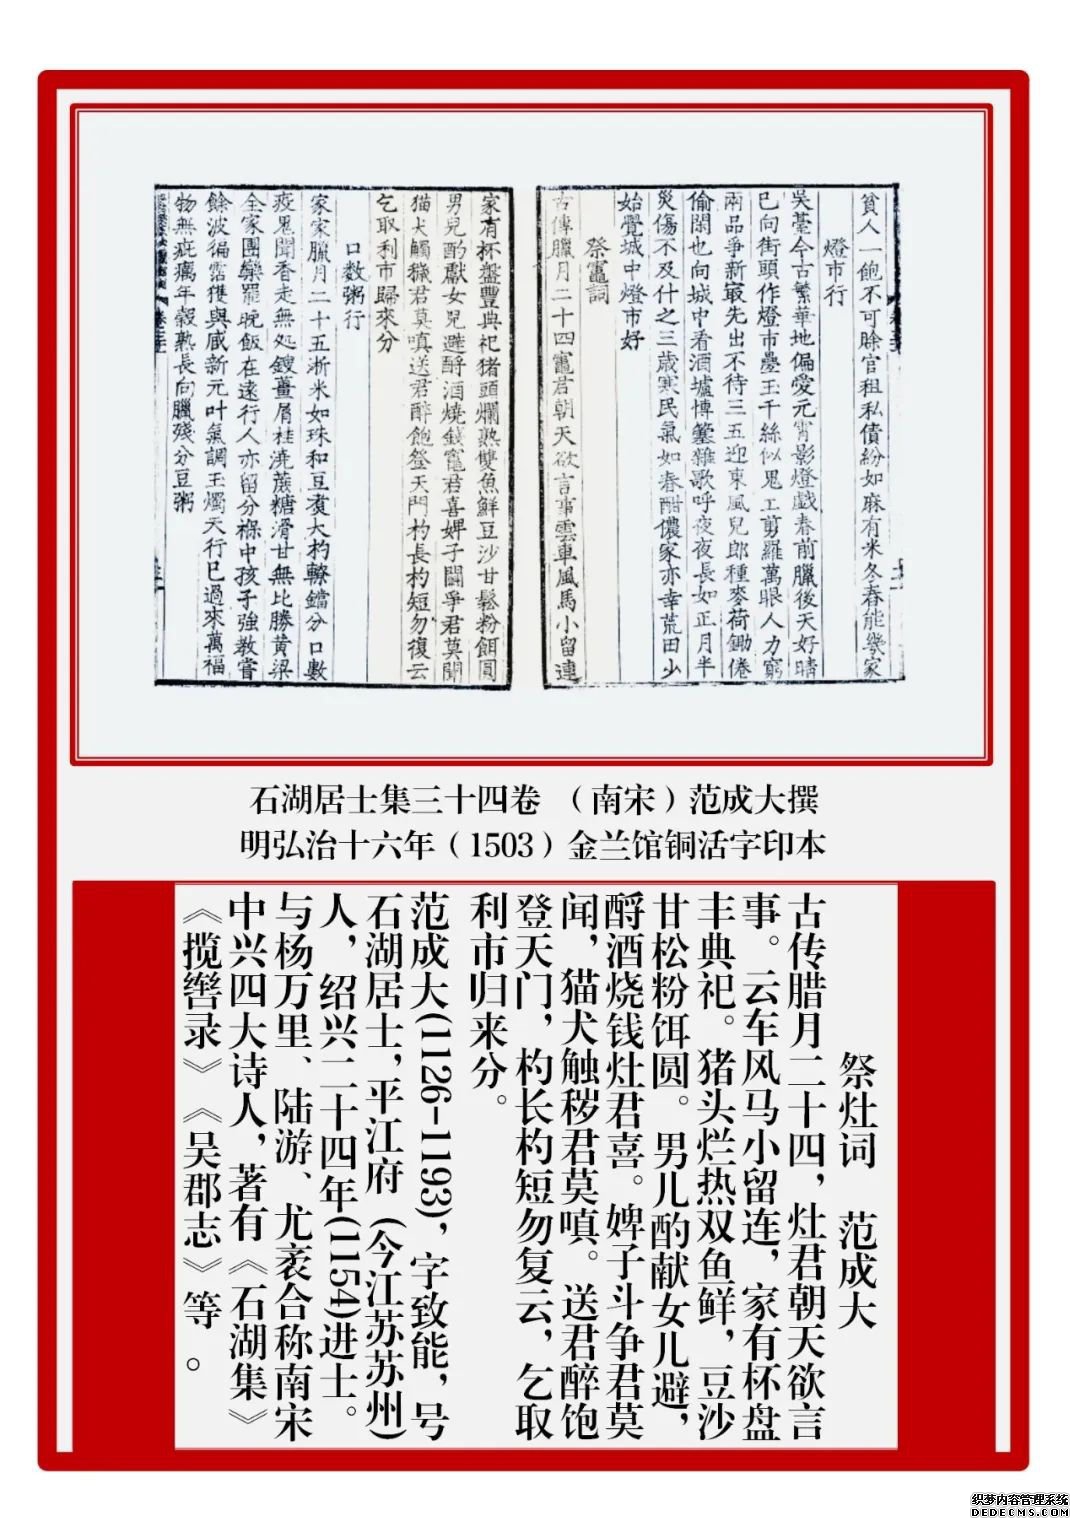 貧人一飽不可賒官租私債紛如麻有米冬舂能幾家
燈市行
吳臺今古繁華地偏愛元宵影燈戲春前臘後天好晴
已向街頭作燈市疊玉千絲似鬼工剪羅萬眼人力窮
兩品爭新最先出不待三五迎東風兒郎種麥荷鋤倦
偷閑也向城中看酒壚博簺雜歌呼夜夜長如正月半
災傷不及什之三歲寒民氣如春酣儂家亦幸荒田少
始覺城中燈市好
祭竈詞
古傳臘月二十四竈君朝天欲言事雲車風馬小留連
家有杯盤豐典祀猪頭爛熟雙魚鮮豆沙甘鬆粉餌圓
男兒酌獻女兒避酹酒燒錢竈君喜婢子鬬爭君莫聞
猫犬觸獩君莫嗔送君醉飽登天門杓長杓短勿復云
乞取利市歸來分
口數粥行
家家臘月二十五淅米如珠和豆煑大杓轑鐺分口數
疫鬼聞香走無処鎪薑屑桂澆蔗糖滑甘無比勝黃粱
全家團欒罷晚飯在遠行人亦留分褓中孩子強教嘗
餘波徧霑獲與臧新元叶氣調玉燭天行已過來萬福
物無疵癘年穀熟長向臘殘分豆粥
石湖居士集三十四卷 （南宋）范成大撰
明弘治十六年（1503）金兰馆铜活字印本
祭灶词 范成大
古传腊月二十四，灶君朝天欲言
事。云车风马小留连，家有杯盘
丰典祀。猪头烂热双鱼鲜，豆沙
甘松粉饵圆。男儿酌献女儿避，
酹酒烧钱灶君喜。婢子斗争君莫
闻，猫犬触秽君莫嗔。送君醉饱
登天门，杓长杓短勿复云，乞取
利市归来分。
范成大(1126-1193)，字致能，号
石湖居士，平江府（今江苏苏州）
人，绍兴二十四年(1154)进士。
与杨万里、陆游、尤袤合称南宋
中兴四大诗人，著有《石湖集》
《揽辔录》《吴郡志》等。
织梦内容管理系统
DEDECMS.COM